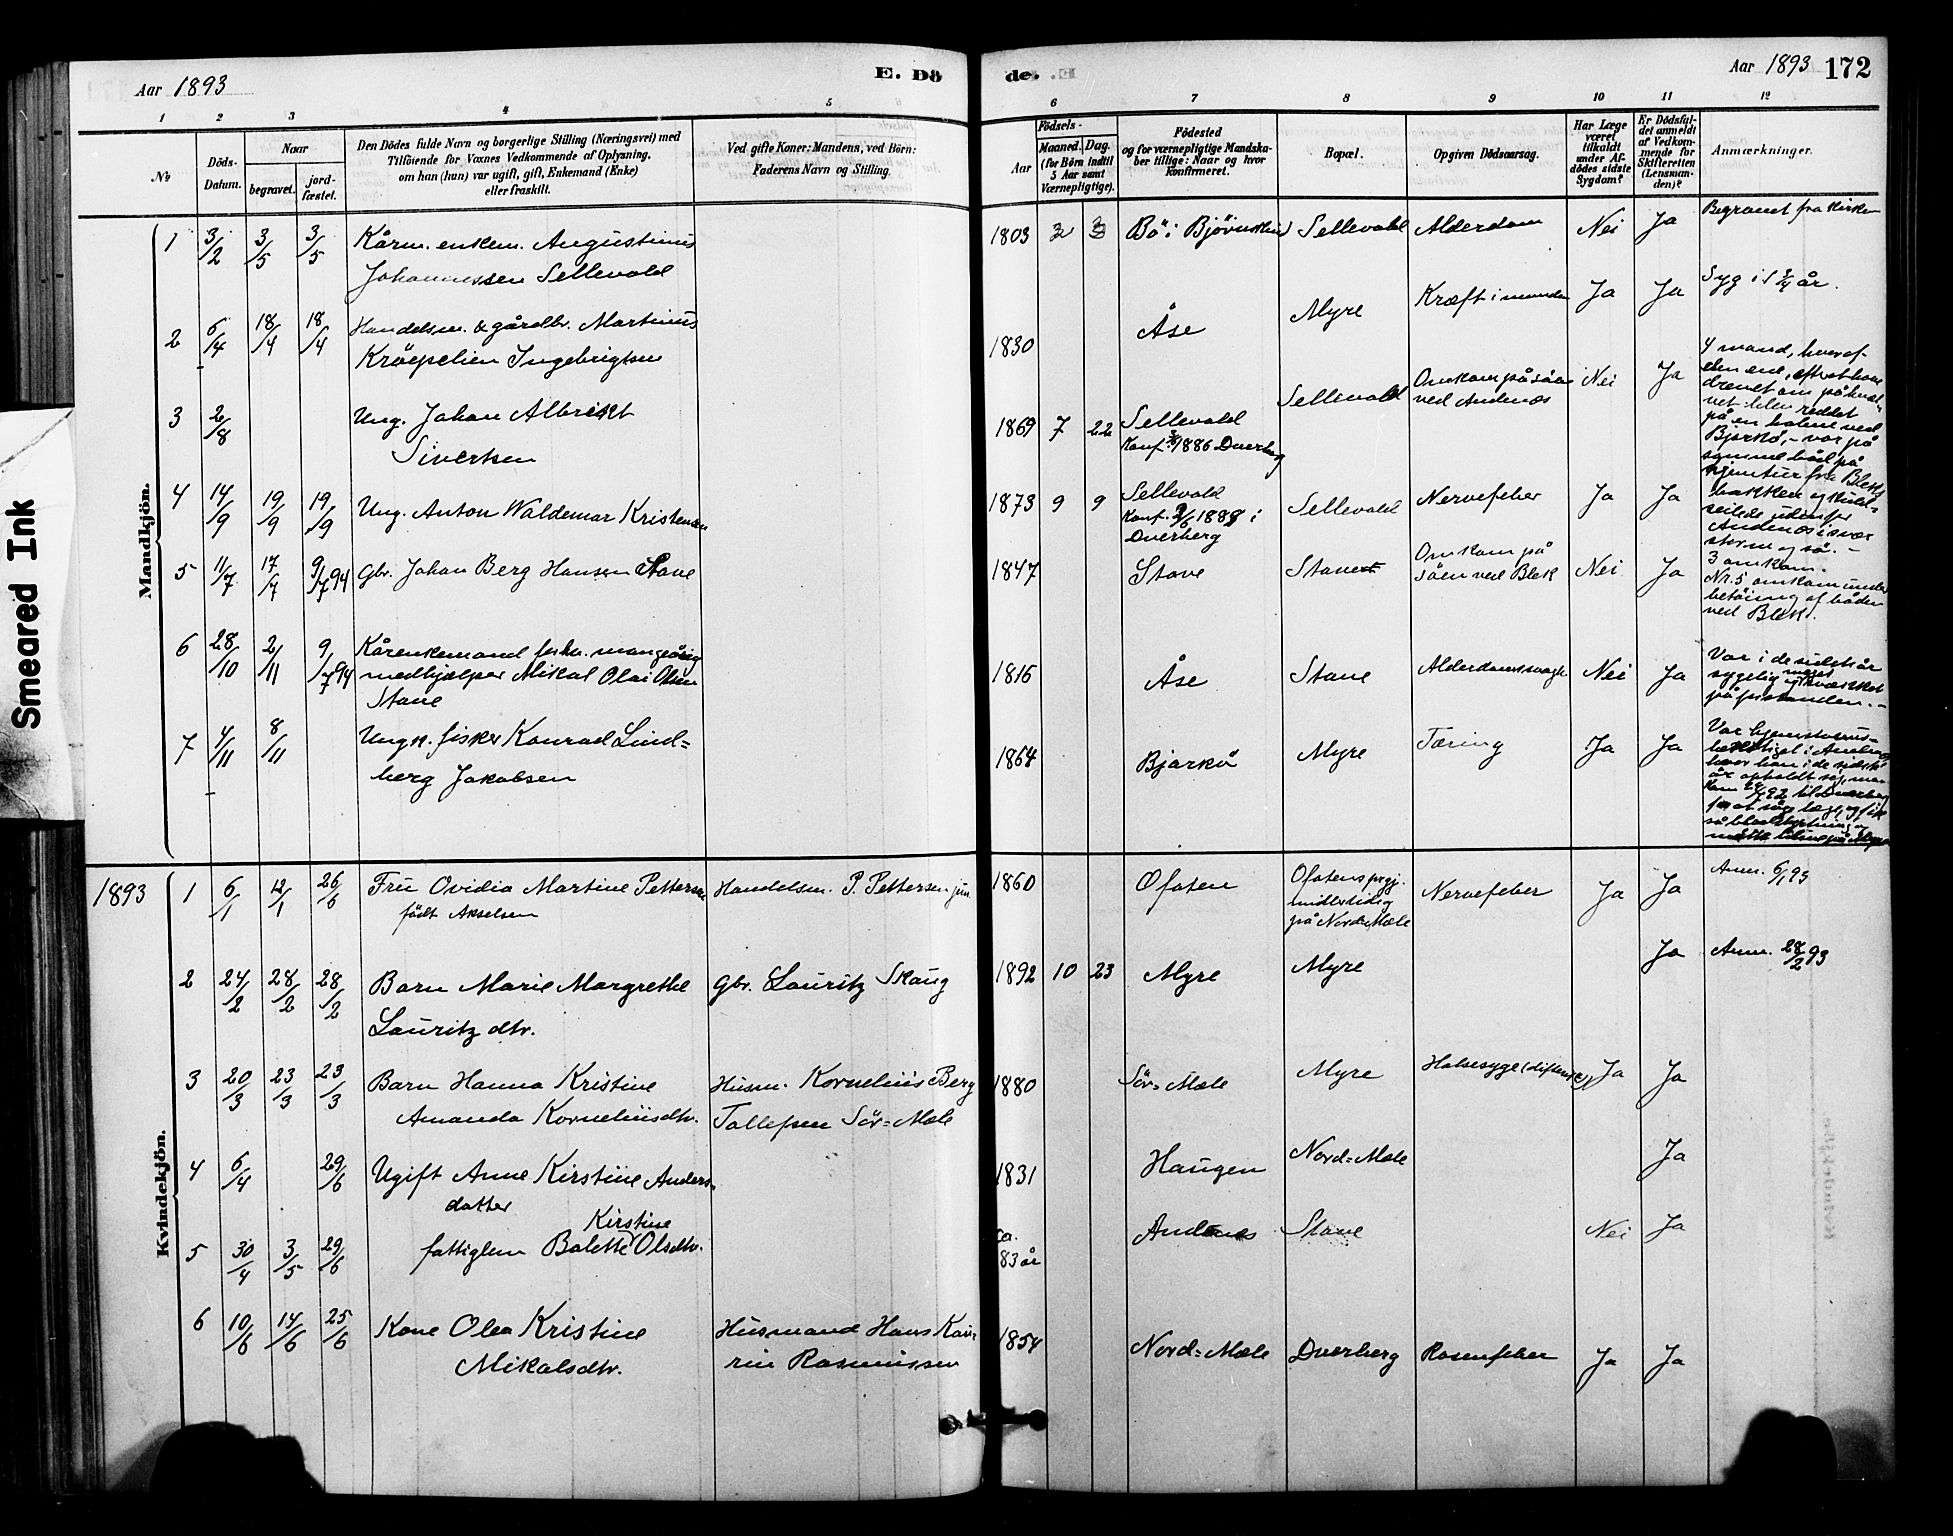 Smeared Ink
Aar 1893
E. Dö
de.
Aar 1893 172
1 2 3 4 5
6 7 8 9 10 11 12
No
Döds-
Datum.
Naar
begravet.
jord-
fæstet.
Den Dödes fulde Navn og borgerlige Stilling (Næringsvei) med
Tilföiende for Voxnes Vedkommende af Oplysning,
om han (hun) var ugift, gift, Enkemand (Enke)
eller fraskilt.
Ved gifte Koner: Mandens, ved Börn:
Faderens Navn og Stilling.
Födsels-
Aar
Maaned. Dag.
(for Börn indtil
5 Aar samt
Værnepligtige).
Födested
og for værnepligtige Mandska-
ber tillige: Naar og hvor
konfirmeret.
Bopæl.
Opgiven Dödsaarsag.
Har Læge
været
tilkaldt
under Af-
dödes sidste
Sygdom?
Er Dödsfal-
det anmeldt
af Vedkom-
mende for
Skifteretten
(Lensman-
den)?
Anmærkninger.
Mandkjön.
1 3/2 3/5 3/5 Kårm. enkem. Augustinus
Johannessen Sellevold
1803 Bö i Sellevold Alderdom Nei Ja Begravet fra kirken
2 6/4 18/4 18/4 Handelsm. & gårdbr. Martinus
Kröepelien Ingebrigtsen
1830 Åse Myre Kræft i munden Ja Ja Syg i 1 3/4 år.
3 2/8 Ung. Johan Albrikt
Sivertsen
1869 7 22 Sellevold
Konf. 1886 Dverberg
Sellevold Omkom på söen
ved Andenæs
Nei Ja
4 mand, hvoraf
den ene, efter at have
drevet om på hvæl-
vet blev reddet
på en holme ved
Bjarkö, - var på
samme båd på
hjemtur fra Blek
4 14/9 19/9 19/9 Ung. Anton Waldemar Kristensen
1873 9 9 Sellevold
Konf. i
Dverberg
Sellevold Nervefeber Ja Ja
seilede udenfor
Andenæs i svær
storm og sö. -
3 omkom.
5 11/7 17/7 9/7 94 Gbr. Johan Berg Hansen Stave
1847 Stave Stave Omkom på
söen ved Blek
Nei Ja
Nr. 5 omkom under
af båden
ved Blek.
6 28/10 2/11 9/7 94 Kårenkemand forhv. mangeårig
medhjælper Mikal Olai Olsen
Stave
1816 Åse Stave Alderdomssvaghed Nei Ja
Var i de sidste år
sygelig og meget svækket
på forstanden. -
7 4/11 8/11 Ungk. fisker Konrad Lind=
berg Jakobsen
1864 Bjarkö Myre Tæring Ja Ja
Var hjemstavns-
berettiget i
hvor han i de sidste
år opholdt sig, men
kom til Dverberg
for at söge læge, og fik
så blodstyrtning og
måtte blive på Myre
1893
Kvindekjön.
1 6/1 12/1 26/6 Fru Ovidia Martine Pettersen
födt Akselsen
Handelsm. P. Pettersen jun
1860 Ofoten Ofotens prgj.
midlertidig
på Nord=Mæle
Nervefeber Ja Ja Anm. 6/1 93
2 24/2 28/2 28/2 Barn Marie Margrethe
Lauritz dtr.
Gbr. Lauritz Skaug
1892 10 23 Myre Myre Ja Anm. 28/2 93
3 20/3 23/3 23/3 Barn Hanna Kristine
Amanda Korneliusdtr.
Husm. Kornelius Berg
Tollefsen Sör=Mæle
1880 Sör=Mæle Myre Halssyge Ja Ja
4 6/4 29/6 Ugift Anne Kirstine Anders-
datter
1831 Haugen Nord=Mæle Ja
5 30/4 3/5 29/6 fattiglem Bolette Kirstine Olsdtr.
ca.
83 år
Andenæs Stave Nei Ja
6 10/6 14/6 25/6 Kone Olea Kristine
Mikalsdtr.
Husmand Hans Kaur-
rin Rasmussen
1854 Nord=Mæle Dverberg Rosenfeber Ja Ja